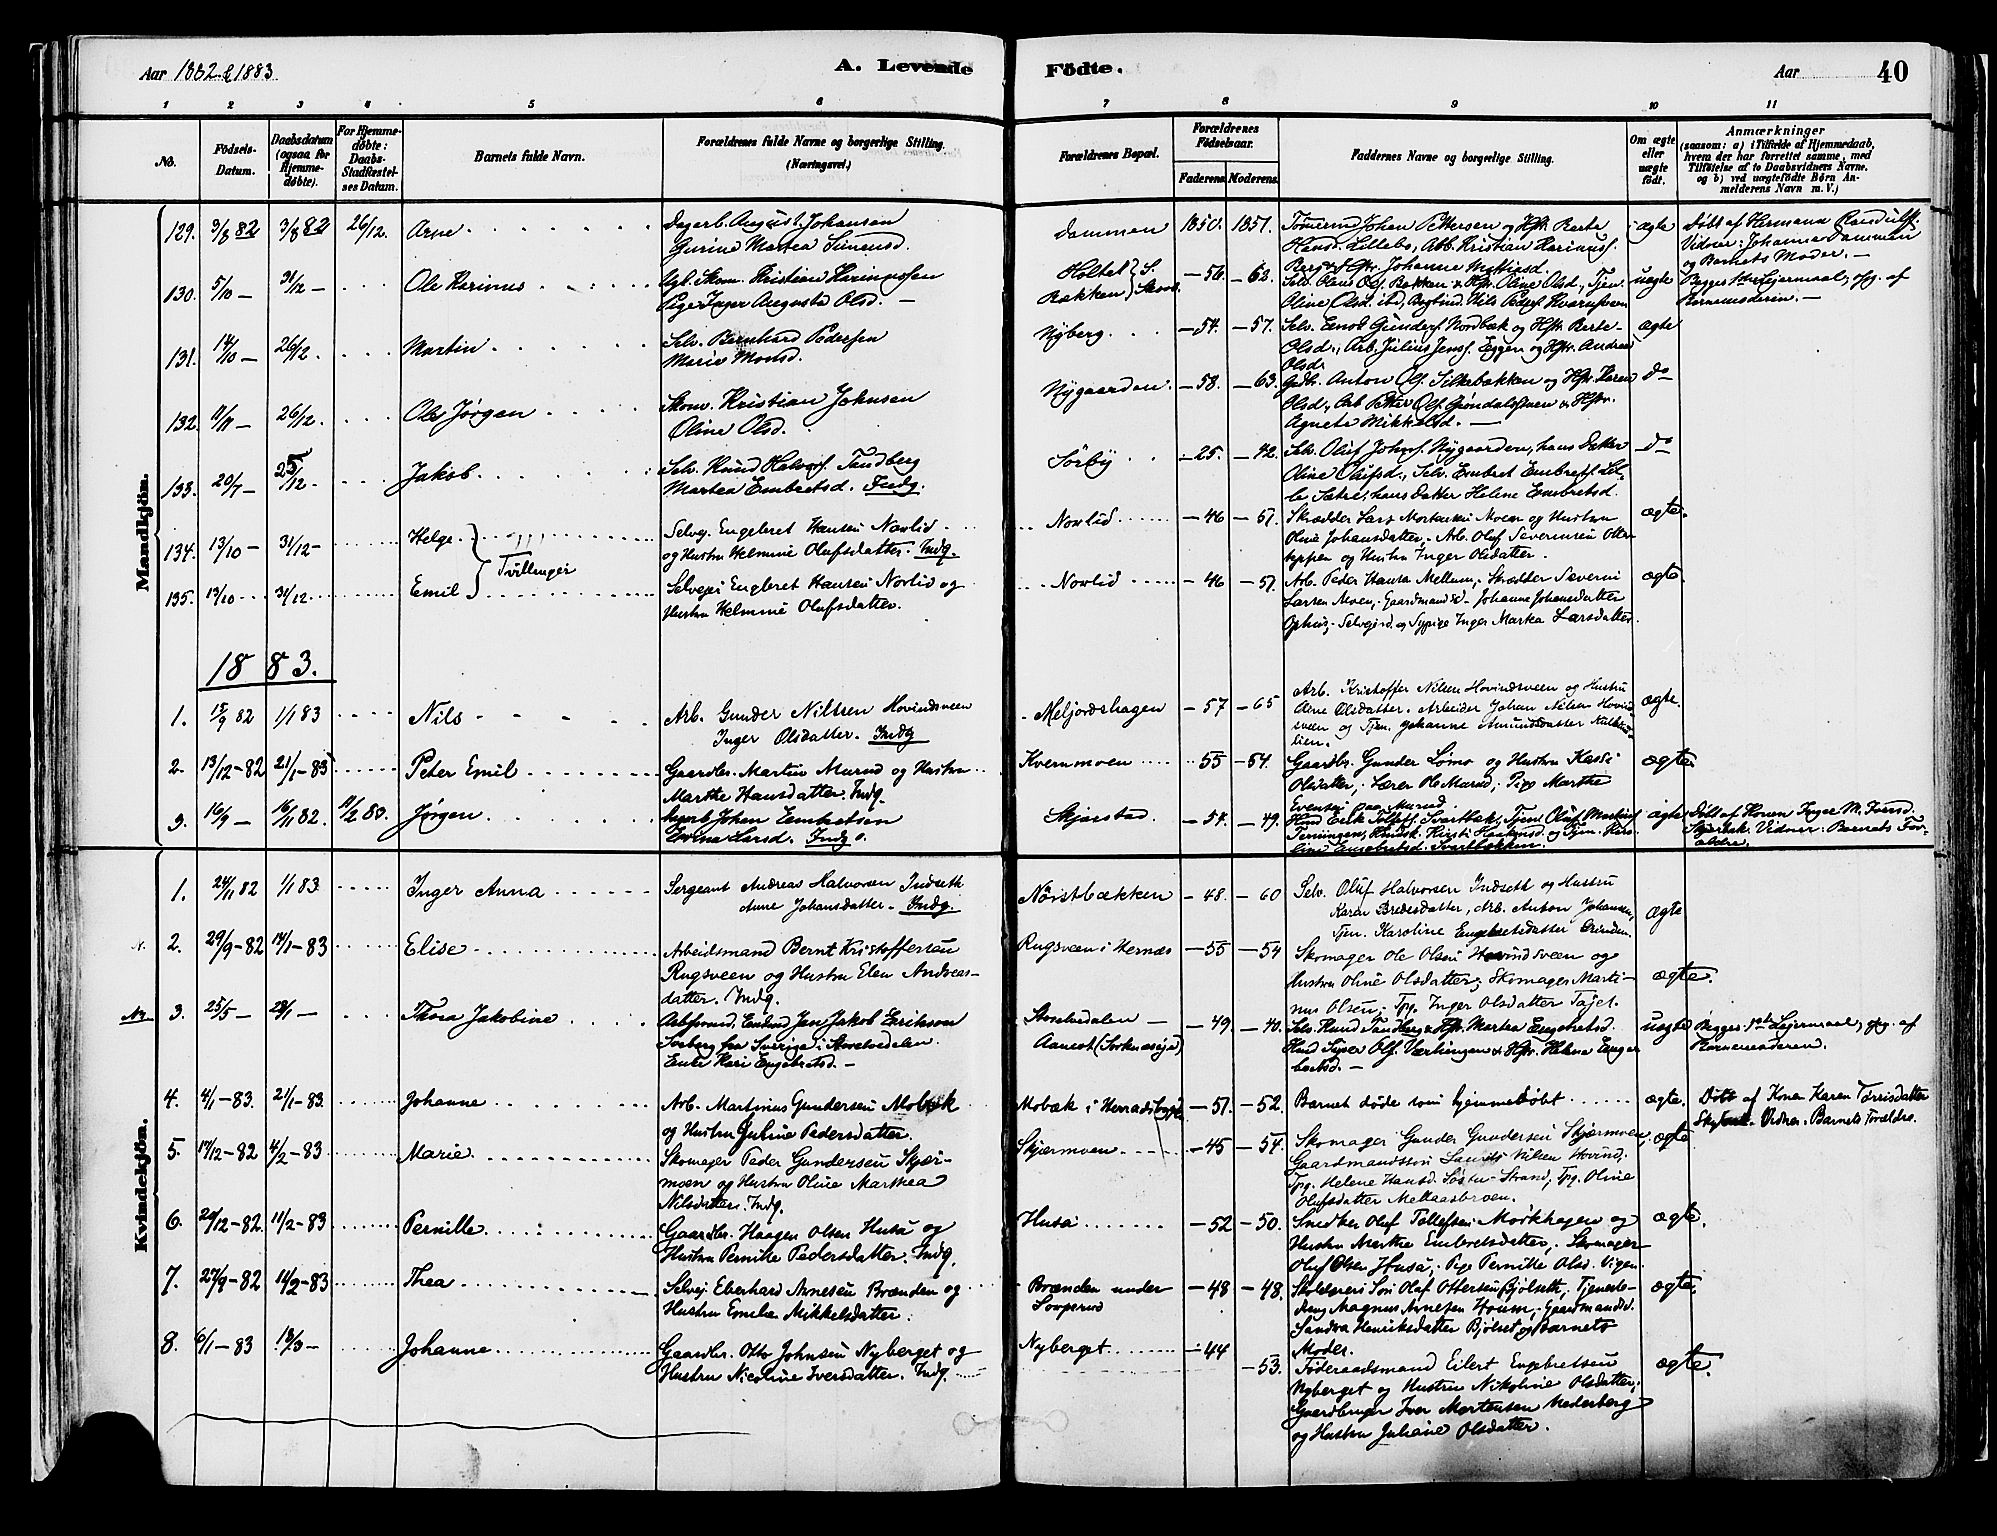 Aar 1882 & 1883
A. Levende Födte.
Aar 40
1 2 3 4 5 6 7 8 9 10 11
No.
Födsels-Datum.
Daabsdatum (ogsaa for Hjemme-døbte).
For Hjemme-døbte: Daabs-Stadfæstel-ses Datum.
Barnets fulde Navn.
Forældrenes fulde Navne og borgerlige Stilling. (Næringsvei.)
Forældrenes Bopæl.
Forældrenes Födselsaar.
Faderens. Moderens.
Faddernes Navne og borgerlige Stilling.
Om ægte eller uægte født.
Anmærkninger
(saasom: a) i Tilfælde af Hjemmedaab, hvem der har forrettet samme, med Tilføielse af to Daabsvidners Navne. og b) ved uægtefødte Børn An-melderens Navn m. V.)
Mandkjön.
129. 3/8 82 3/8 82 26/12. Arne
Dagarb. August Johansen
Gurine Martea Simensd.
Dammen 1850. 1851.
Tømerm. Johan Pettersen og Hstr. Berte
Lillebo, Arb. Kristian
Berg & Hstr. Johanne
ægte
Døbt af Hermana
Vidner: Johanne Dammen
og Barnets Moder.
130. 5/10 — 31/12 — Ole Karinus
Ugk. Skom. Kristian
Pige Inger Augusta Olsd. —
Holtet } S.
Bakken } Skovs.
— 56. — 62.
Selv. Olaus Ols. Bakken & Hstr. Oline Olsd., Tjen.
Oline Olsd. ibd,
uægte
Begges 1ste Leiermaal, opg. af
Barnemoderen. —
131. 14/10 — 26/12. Martin
Selv. Bernhard Pedersen
Marie Monsd.
Nyberg. — 54. — 57.
Selv. Enod Gunders. Nordbæk og Hstr. Berte
Olsd., Arb. Julius Jens. Eggen og Hstr. Andrea
Olsd.
ægte
132. 11/11 — 26/12. Ole Jørgen
Skom. Kristian Johnsen
Oline Olsd.
Nygaarden. — 58. — 63.
Gdb. Anton Ols. Silkebækken og Hstr. Karen
Olsd., Arb. Petter Ols. Grøndalshuen & Hstr.
Agnete Mikkelsd. —
do
133. 20/7 — 25/12 — Jakob
Selv. Knud Halvors. Tandberg
Martea Embretsd. Indg.
Sörby — 25. — 42.
Selv. Oluf Johns. Nygaarden, hans Datter
Oline Olufsd., Selv. Embret Embrets. Lil-
le Sætre, hans Datter Helene Embretsd.
do
134. 13/10 — 31/12 — Helge
Tvillinger
Selvej. Engebret Hansen Novlid
og Hustru Helmine Olufsdatter. Indg.
Novlid — 46 — 57.
Skrædder Lars Mortensen Moen og Hustru
Oline Johansdatter, Arb. Oluf Severinsen Otter
toppen og Hustru Inger Olsdatter.
ægte.
135. 13/10 31/12 Emil
Selvejer Engebret Hansen Novlid og
Hustru Helmine Olufsdatter.
Novlid — 46 — 57
Arb. Peder Hansen Mellum, Skrædder Severin
Larsen Moen, Gaardmandsd. Johanne Johansdatter
Ophus, Selvejerd. og Sypige Inger Martea Larsdatter
ægte.
1883.
1. 15/9 82 1/1 83 Nils
Arb. Gunder Nilsen Hovindsveen
Inger Olsdatter. Indg
Meljordshagen — 57 — 65
Arb. Kristoffer Nilsen Hovindsveen og Hustru
Anne Olsdatter. Arbeider Johan Nilsen Hovind
sveen og Tjen. Johanne Amundsdatter
lien.
ægte.
2. 13/12 — 82 21/1 — 83 Peter Emil
Gaardbr. Martin Murud og Hustru
Marthe Hansdatter. Indg.
Kvernmoen — 55 — 54.
Gaardbr. Gunder Lömo og Hustru Kasse
Olsdatter, Lærer Ole Murud, Pige Marthe
Evensen Murud.
ægte
3. 16/9 — 16/11 82. 11/2 83. Jørgen
Johan Embretsen
Larsd. Indg.
Skjærstad — 54. — 49.
Husm. Eirik Tollefs. Svartbæk, Tjen. Oluf Martins.
Terningen, Kirsti Haakensd. og Tjen. Karo-
line Embretsd. Svartbækken.
ægte
Döbt af Konen Inger M.
Vidner: Barnets For-
ældre.
Kvindekjön.
1. 24/11 82 1/1 83 Inger Anna
Sergeant Andreas Halvorsen Indseth
Anne Johansdatter. Indg.
Nöistbækken — 48. — 60
Selv. Oluf Halvorsen Indseth og Hustru
Karen Bredesdatter, Arb. Anton Johansen,
Tjen. Karoline Engebretsdatter Grinden.
ægte
N. 2. 29/9 — 82 14/1 — 83 Elise
Arbeidsmand Bernt Kristoffersen
Rugsveen og Hustru Elen Andreas-
datter. Indg.
Rugsveen i Hernæs — 55 — 54
Skomager Ole Olsen Hovindsveen og
Hustru Oline Olsdatter, Skomager Marti-
nus Olsen, Tpg. Inger Olsdatter
ægte.
3. 25/5 — 28/1 — Thora Jakobine
Jan Jakob Erikson
fra Sverige i Storelvedalen.
Enke Kari Engebretsd. —
Storelvedalen —
Aamot (Sorknæseje)
— 49 — 40.
Selv. Knud Tandberg & Hstr. Martea Engebretsd.
Ols. Værlingen & Hstr. Helene Enge
bretsd. —
uægte
Begges 1ste Lejermaal, opg. af
Barnemoderen.
4. 4/1 — 83. 21/1 — 83. Johanne
Arb. Martinus Gundersen Mobæk
og Hustru Juline Pedersdatter.
Mobæk i Herradsbygd — 51 — 52.
Barnet døde som hjemmedøbt
ægte.
Döbt af Konen Karen Torrisdatter
Vidner. Barnets Forældre.
5. 17/12 — 82 4/2 — 83 Marie
Skomager Peder Gundersen Skjær-
moen og Hustru Oline Marthea
Nilsdatter. Indg.
Skjærmoen — 45 — 54.
Skomager Gunder Gundersen Skjærmoen,
Gaardmandssön Nilsen Hovind,
Tpg. Helene Hansd. Söstu-Strand, Tpg. Oline
Olufsdatter Mellaasbroen.
ægte
6. 20/12 — 82 11/2 — 83 Pernille
Gaardbr. Haagen Olsen Husu og
Hustru Pernille Pedersdatter. Indg.
Husa — 52 — 50.
Snedker Oluf Tollefsen Mörkhagen og
Hustru Marthe Embretsdatter, Skomager
Oluf Olsen Husu, Pige Pernille Olsd. Vigen
ægte.
7. 27/9 — 82 14/2 — 83 Thea
Selvej. Eberhard Arnesen Brænden og
Hustru Emilie Mikkelsdatter.
Brænden under
— 48 — 48.
Skolelærers Sön Oluf Ottersen Bjölseth, Tjeneste-
dreng Magnus Arnesen Houm, Gaardmandsd.
Sandra Henriksdatter Bjölset og Barnets
Moder.
ægte.
8. 6/1 — 83 18/3 — Johanne
Gaardbr. Otto Johnsen Nyberget og
Hustru Nicoline Iversdatter. Indg.
Nyberget — 44 — 53.
Föderaadsmand Eilert Engebretsen
Nyberget og Hustru Nikoline Olsdatter,
Gaardbruger Iver Mortensen Nederberg
og Hustru Juliane Olsdatter.
ægte.